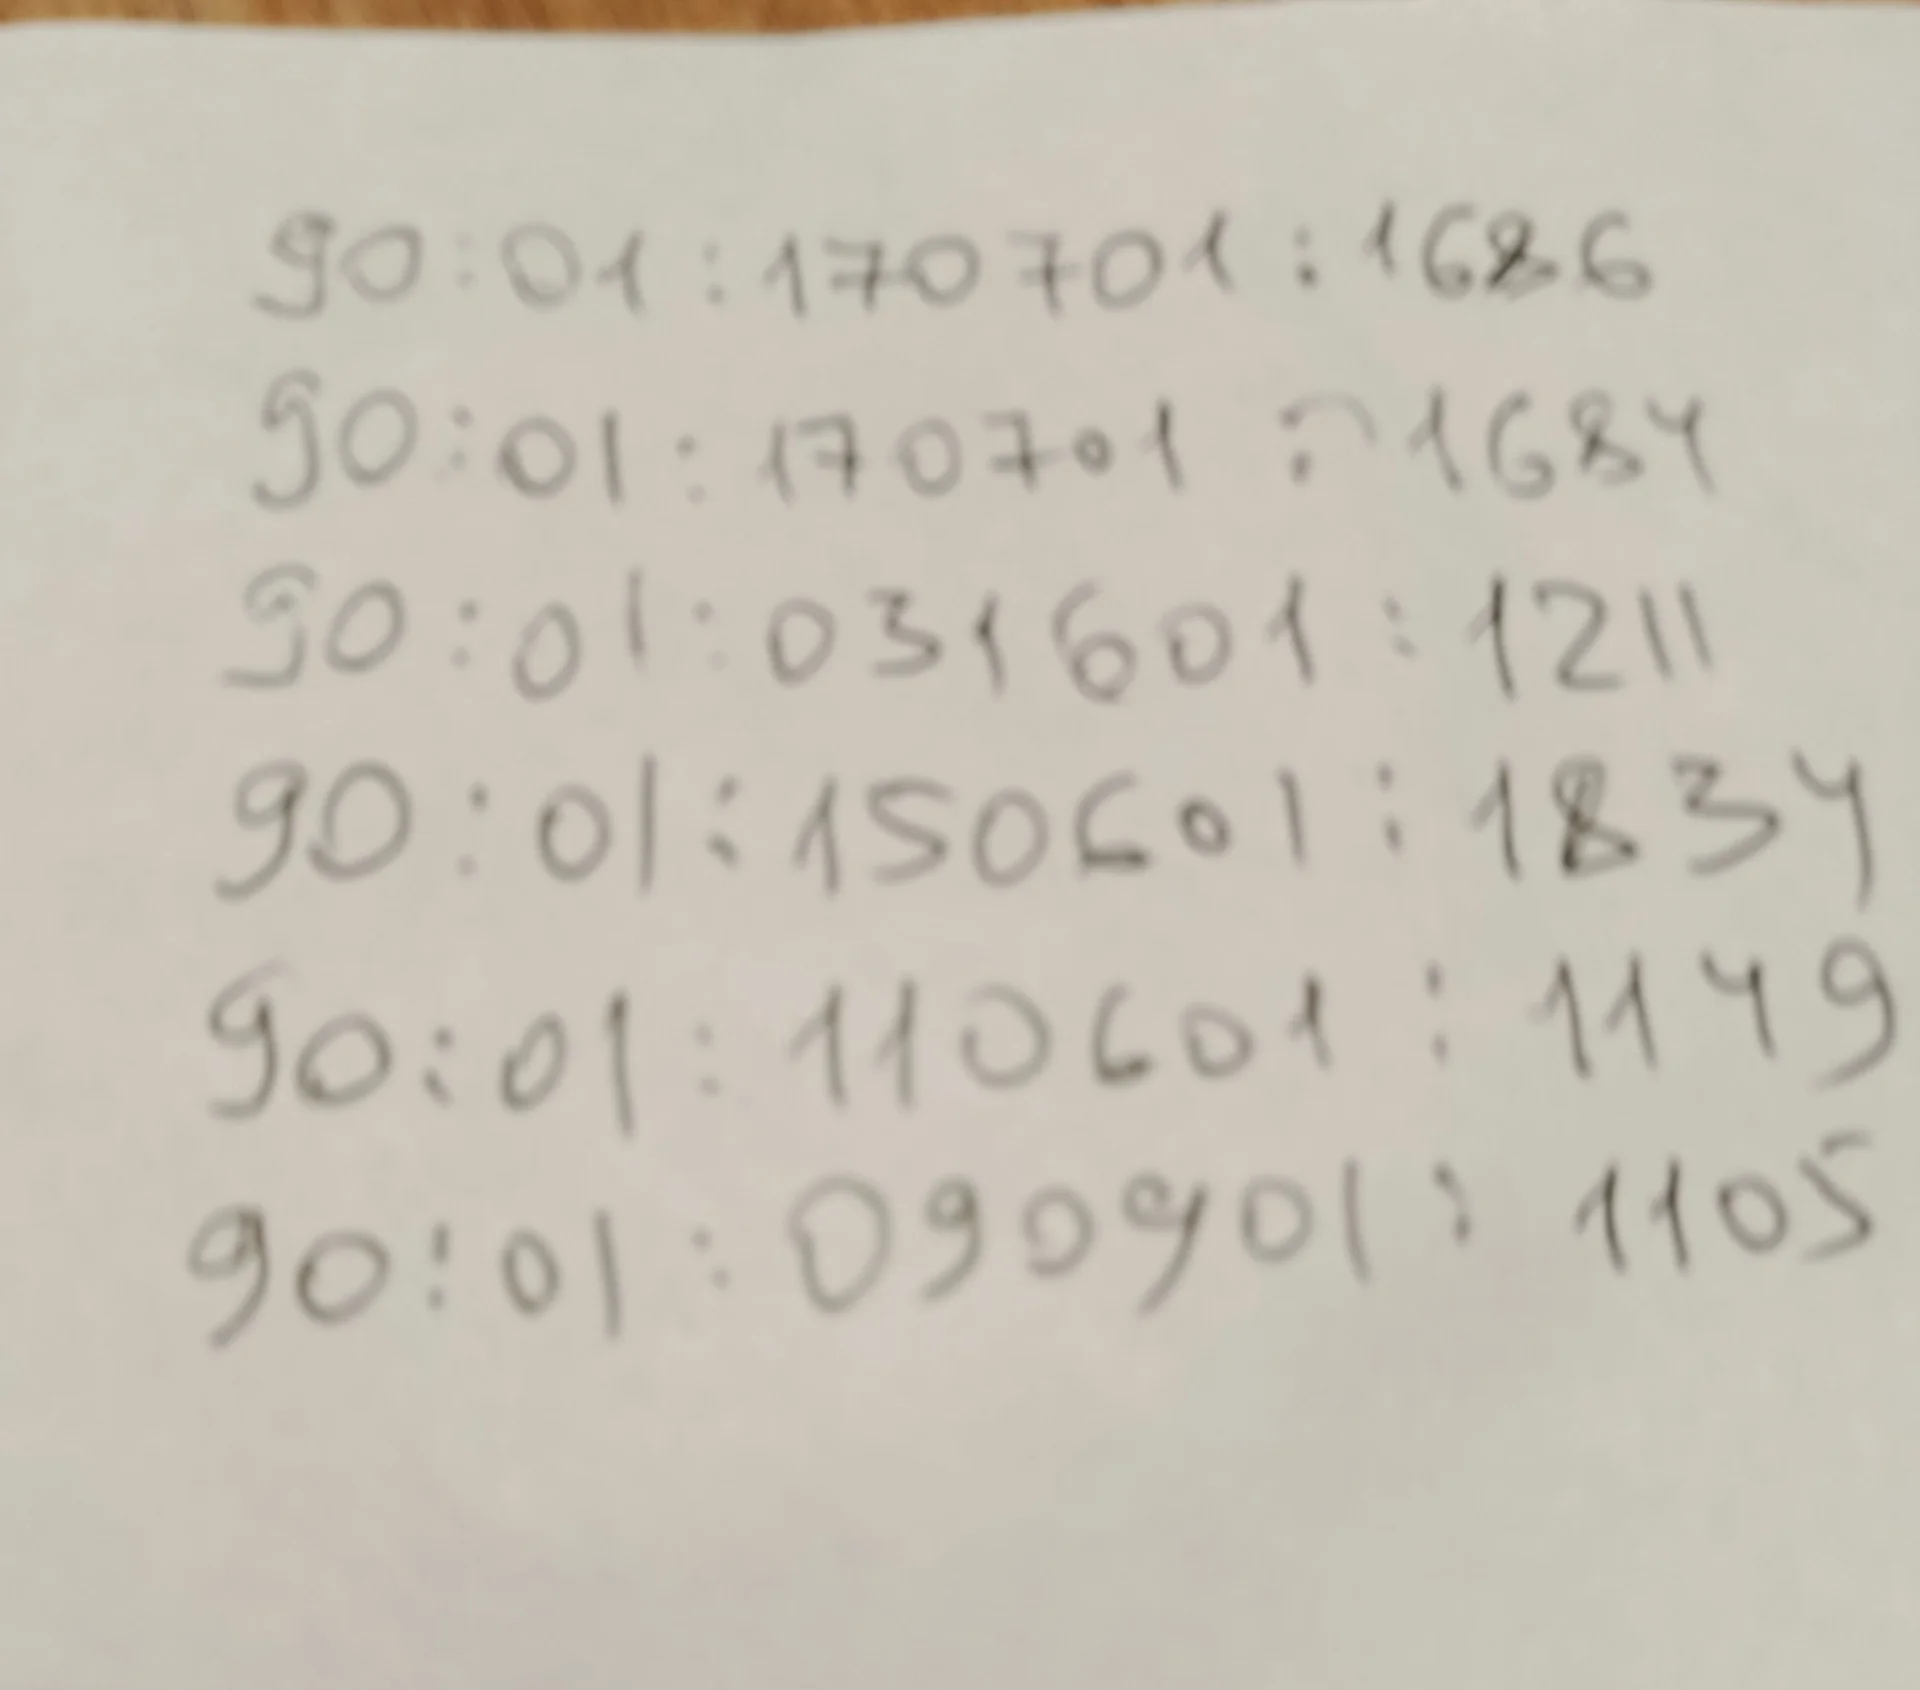 90:01:170701:1686
90:01:170701:1684
90:01:031601:1211
90:01:150601:1834
90:01:110601:1149
90:01:090901:1105